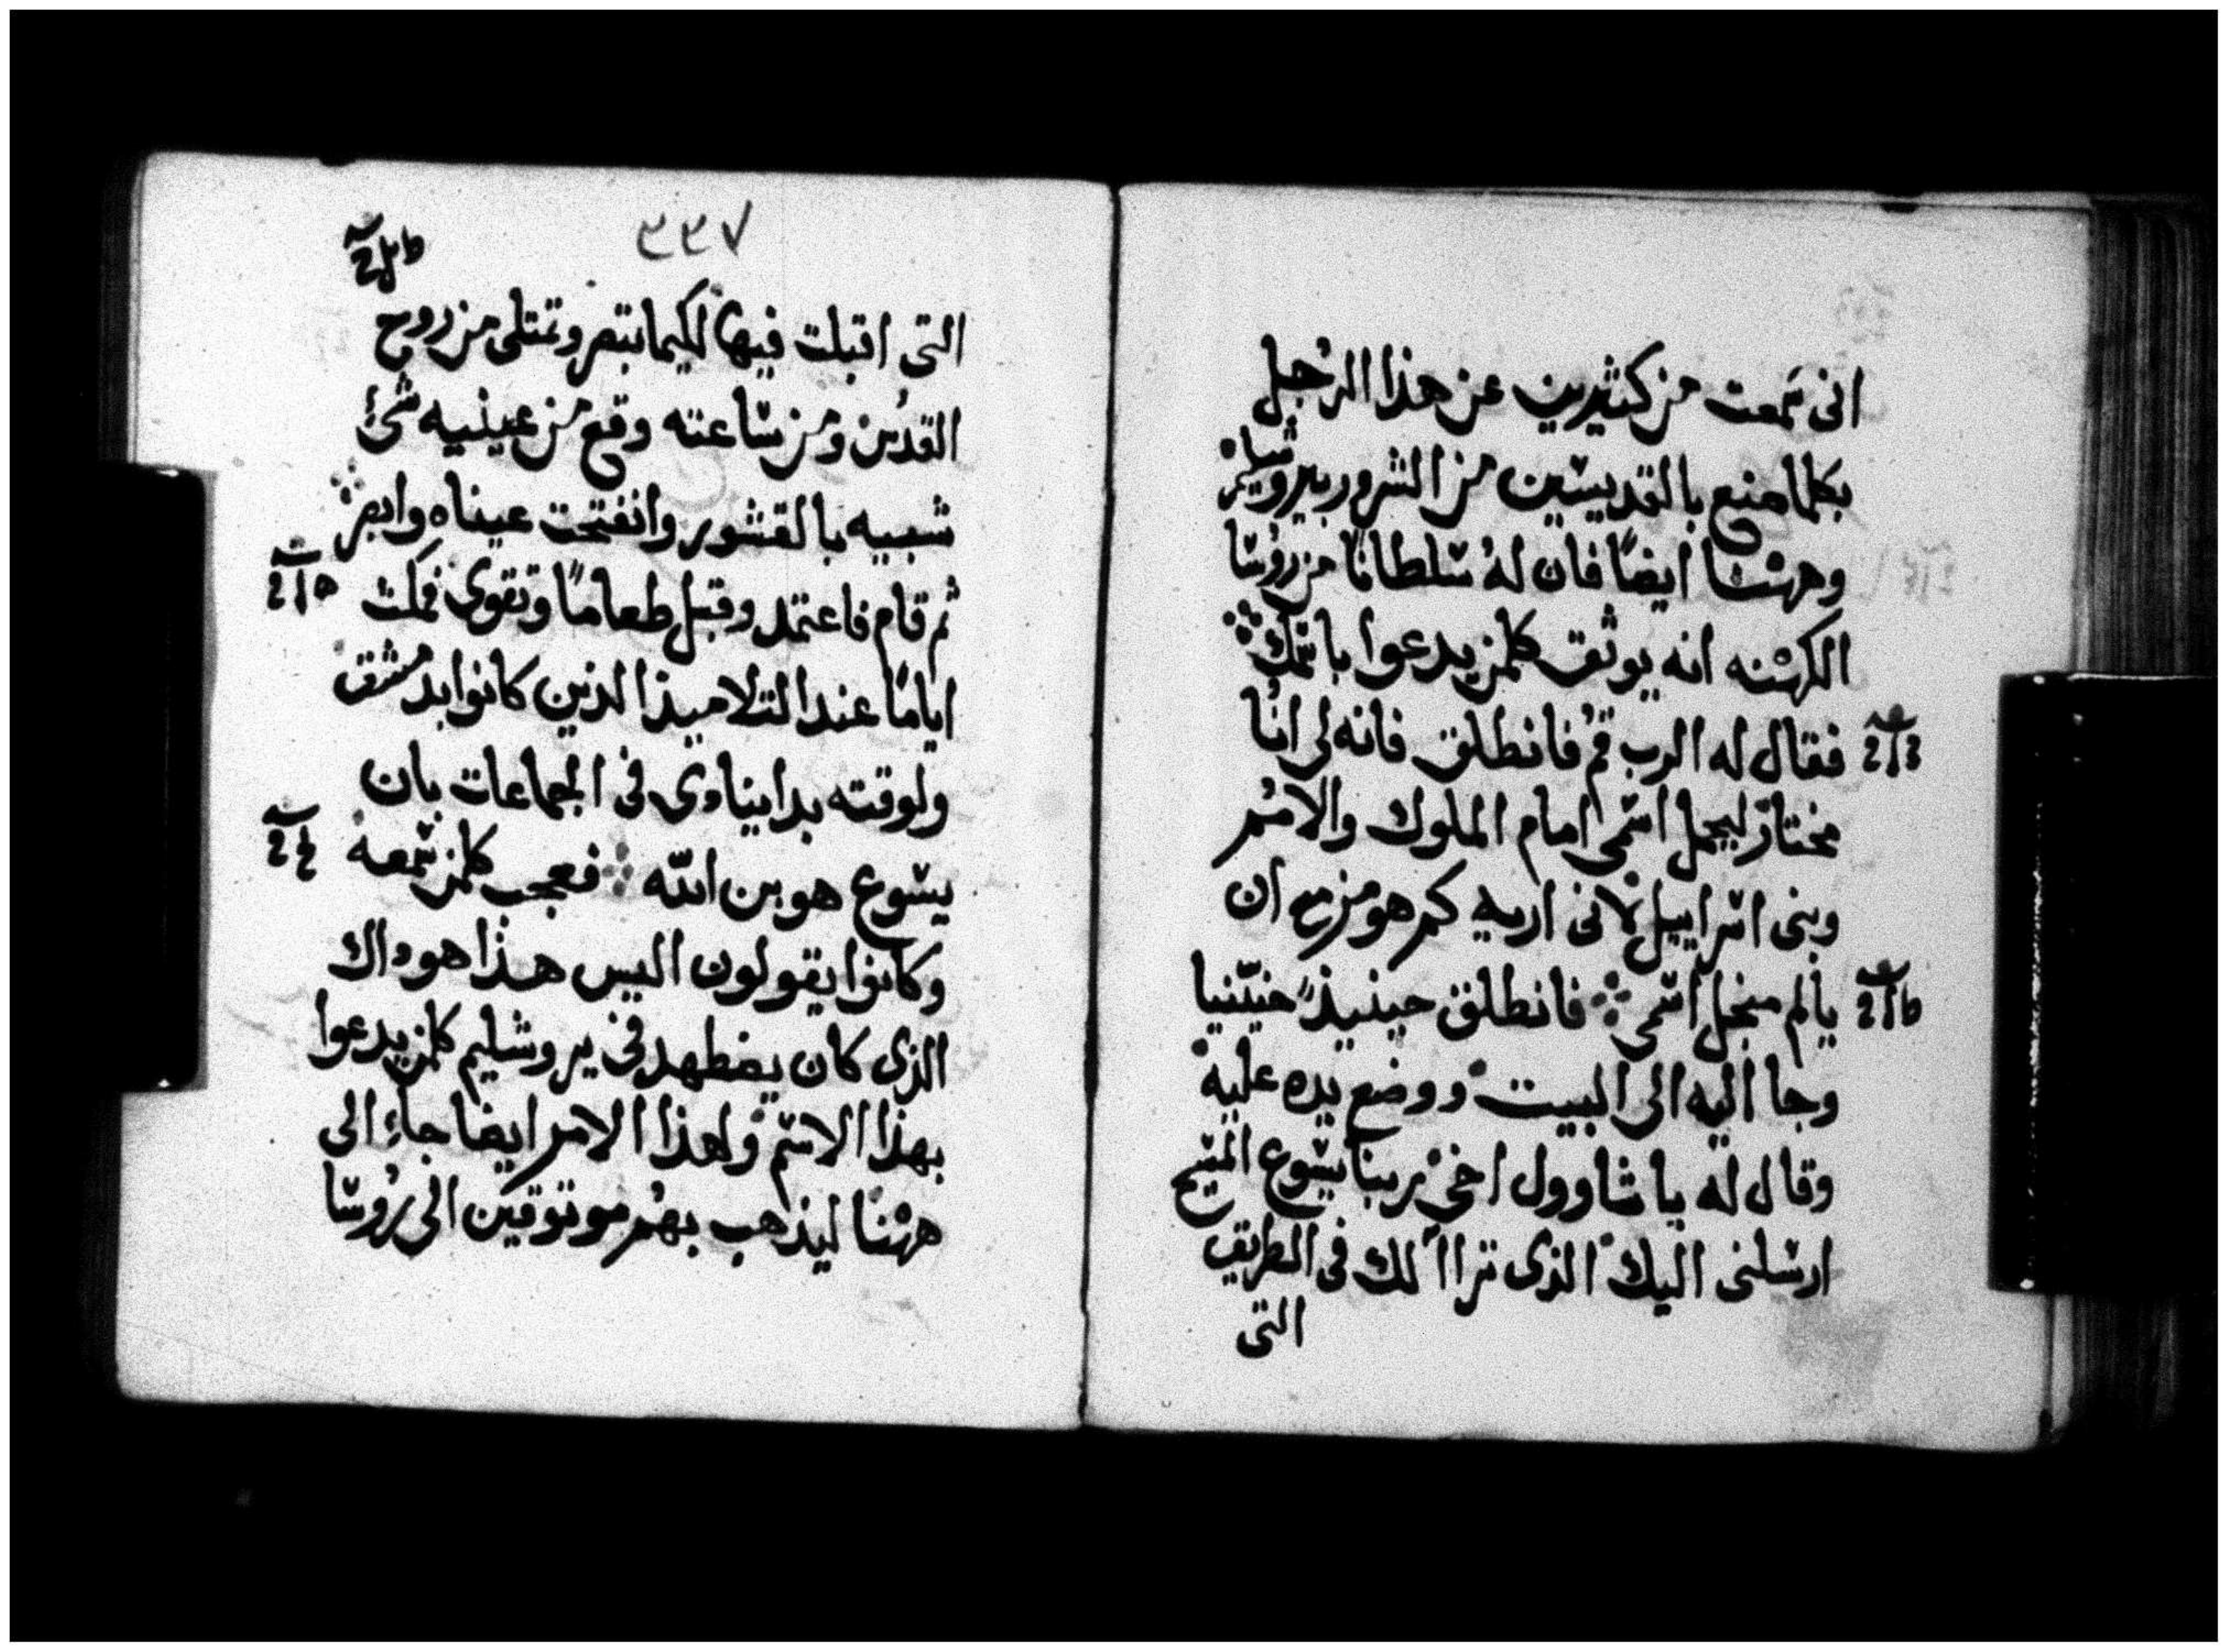 انى سمعت من كثيرين عن هذا الرجل
بكلما صنع بالقديسين من الشرور بيروشليم
وههنا ايضًا فان لهُ سلطانًا من روسا
الكهنه انه يوثق كلمن يدعوا باسمك
فقال له الرب قمُ فانطلق فانه لى انا
مختارٌ ليحمل اسمى امام الملوك والامم
وبنى اسراييل لانى اريه كم هو مزمع ان
يالم من اجل اسمى فانطلق حينيذٍ حننيا
وجا اليه الى البيت ووضع يده عليه
وقال له يا شاوول اخى ربنا يسوع المسيح
ارسلنى اليك الذى تراا لك فى الطريق
التى
٣٣٧
التى اقبلت فيها لكيما تبصر وتمتلى من روح
القدس ومن ساعته وقع من عينيه شئ
شبيه بالقشور وانفتحت عيناه وابصر
ثم قام فاعتمد وقبل طعامًا وتقوى فمكث
ايامًا عند التلاميذ الذين كانوا بدمشق
ولوقته بدا ينادى فى الجماعات بان
يسوع هو بن الله فعجب كلمن سمعه
وكانوا يقولون اليس هذا هو داك
الذى كان يضطهد فى يروشليم كلمن يدعوا
بهذا الاسم ولهذا الامر ايضا جاء الى
ههنا ليذهب بهم موتوقين الى روسا